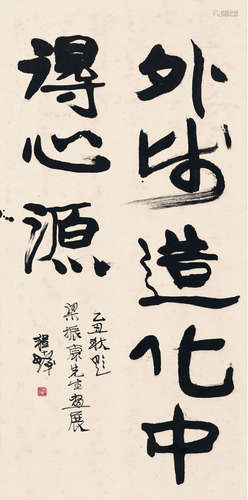 外师造化中
得心源
乙丑秋题
梁振康先生画展
程十发